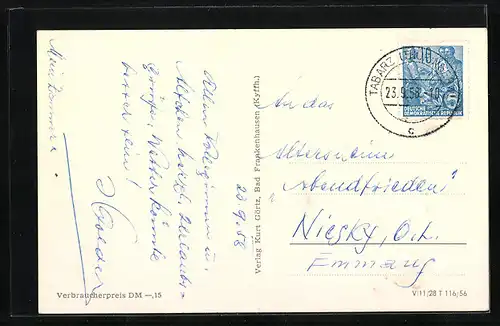 Mein Zimmer
23.9.58
Allen Kolleginnen u.
Alfolen herzl. Urlaubs-
grüße. Wetter könnte
besser sein!
Verbraucherpreis DM —,15
Verlag Kurt Görtz, Bad Frankenhausen (Kyffh.)
TABARZ
23.9.58-10
c
DEUTSCHE
DEMOKRATISCHE REPUBLIK
An das
Altersheim
„Abendfrieden"
Niesky, O.L.
Emmaus
V 11/28 T 116/56